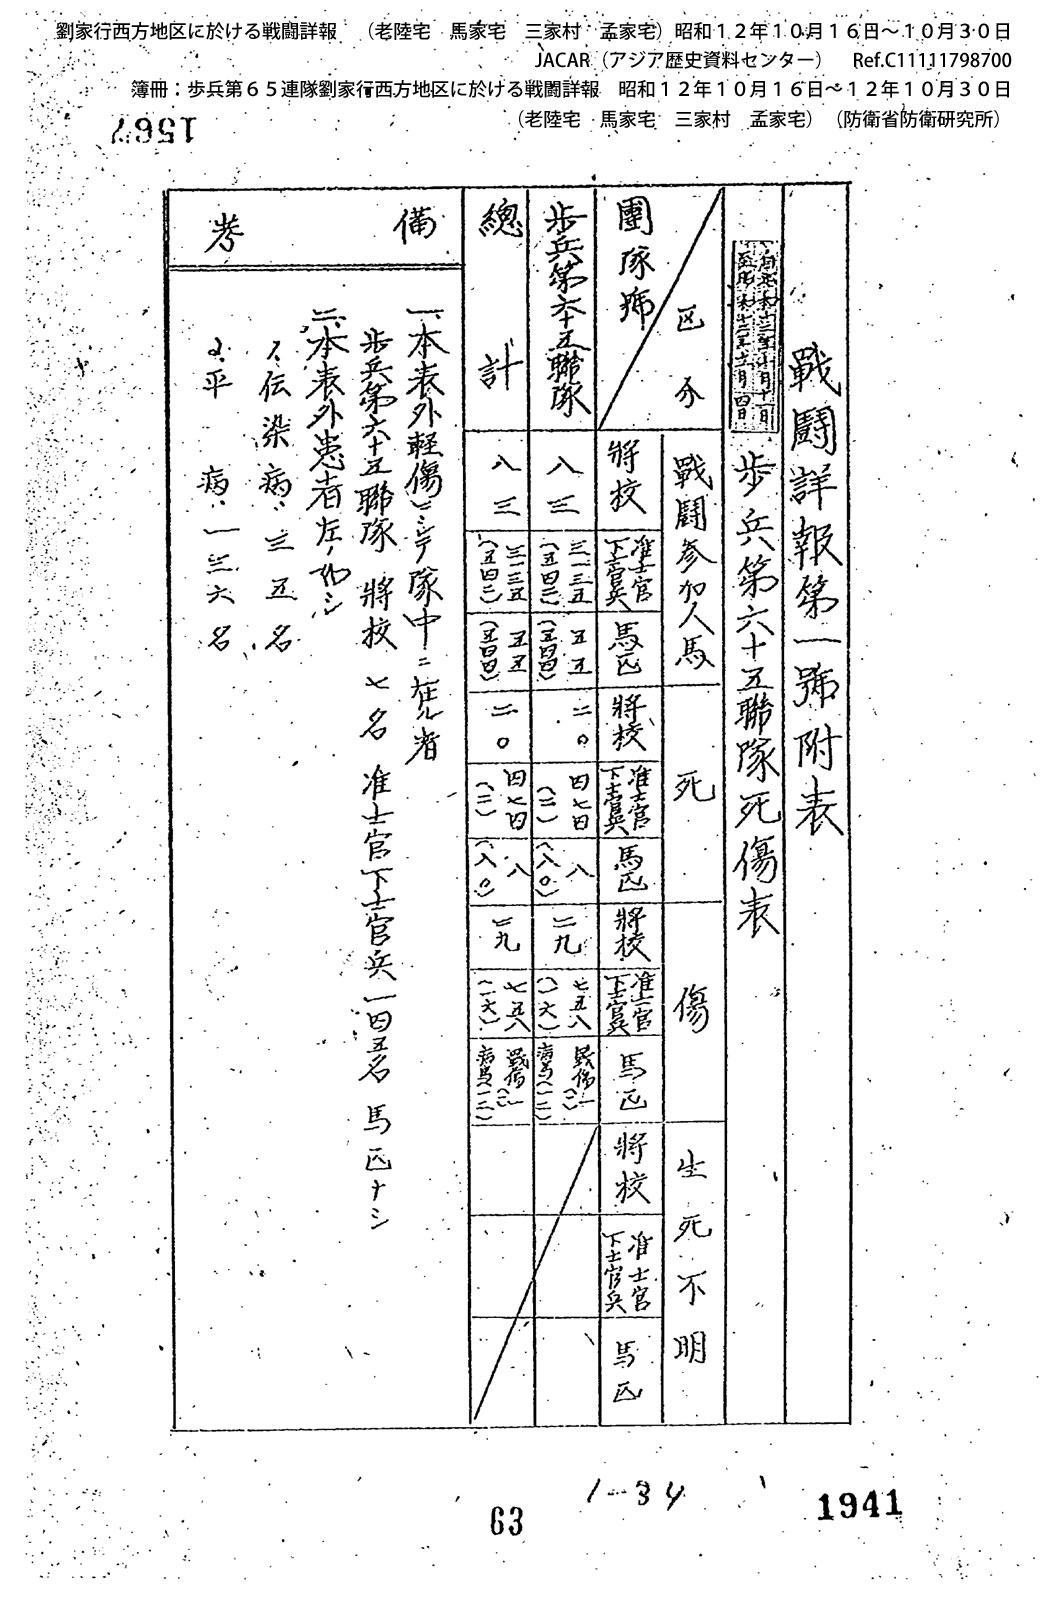 劉家行西方地区に於ける戦闘詳報　（老陸宅　馬家宅　三家村　孟家宅）昭和１２年１０月１６日～１０月３０日
JACAR（アジア歴史資料センター）　Ref.C11111798700
簿冊：歩兵第６５連隊劉家行西方地区に於ける戦闘詳報　昭和１２年１０月１６日～１２年１０月３０日
（老陸宅　馬家宅　三家村　孟家宅）（防衛省防衛研究所）
1567
戰闘詳報第一號附表
歩兵第六十五聯隊死傷表
區分
團隊號
戰闘参加人馬
死
傷
生死不明
將校
准士官下士官兵
馬匹
將校
准士官下士官兵
馬匹
將校
准士官下士官兵
馬匹
將校
准士官下士官兵
馬匹
歩兵第六十五聯隊
八三
三一三五
五五
二〇
四七四
八
(八〇)
二九
七五八
(一六)
總計
八三
三一三五
五五
二〇
四七四
八
(八〇)
二九
七五八
(一六)
備考
一、本表外軽傷ニシテ隊中ニ在ル者
歩兵第六十五聯隊　將校　七名　准士官下士官兵一四五名　馬匹ナシ
二、本表外患者左ノ如シ
1、伝染病　三五名
2、平病　一三六名
1-34
63
1941